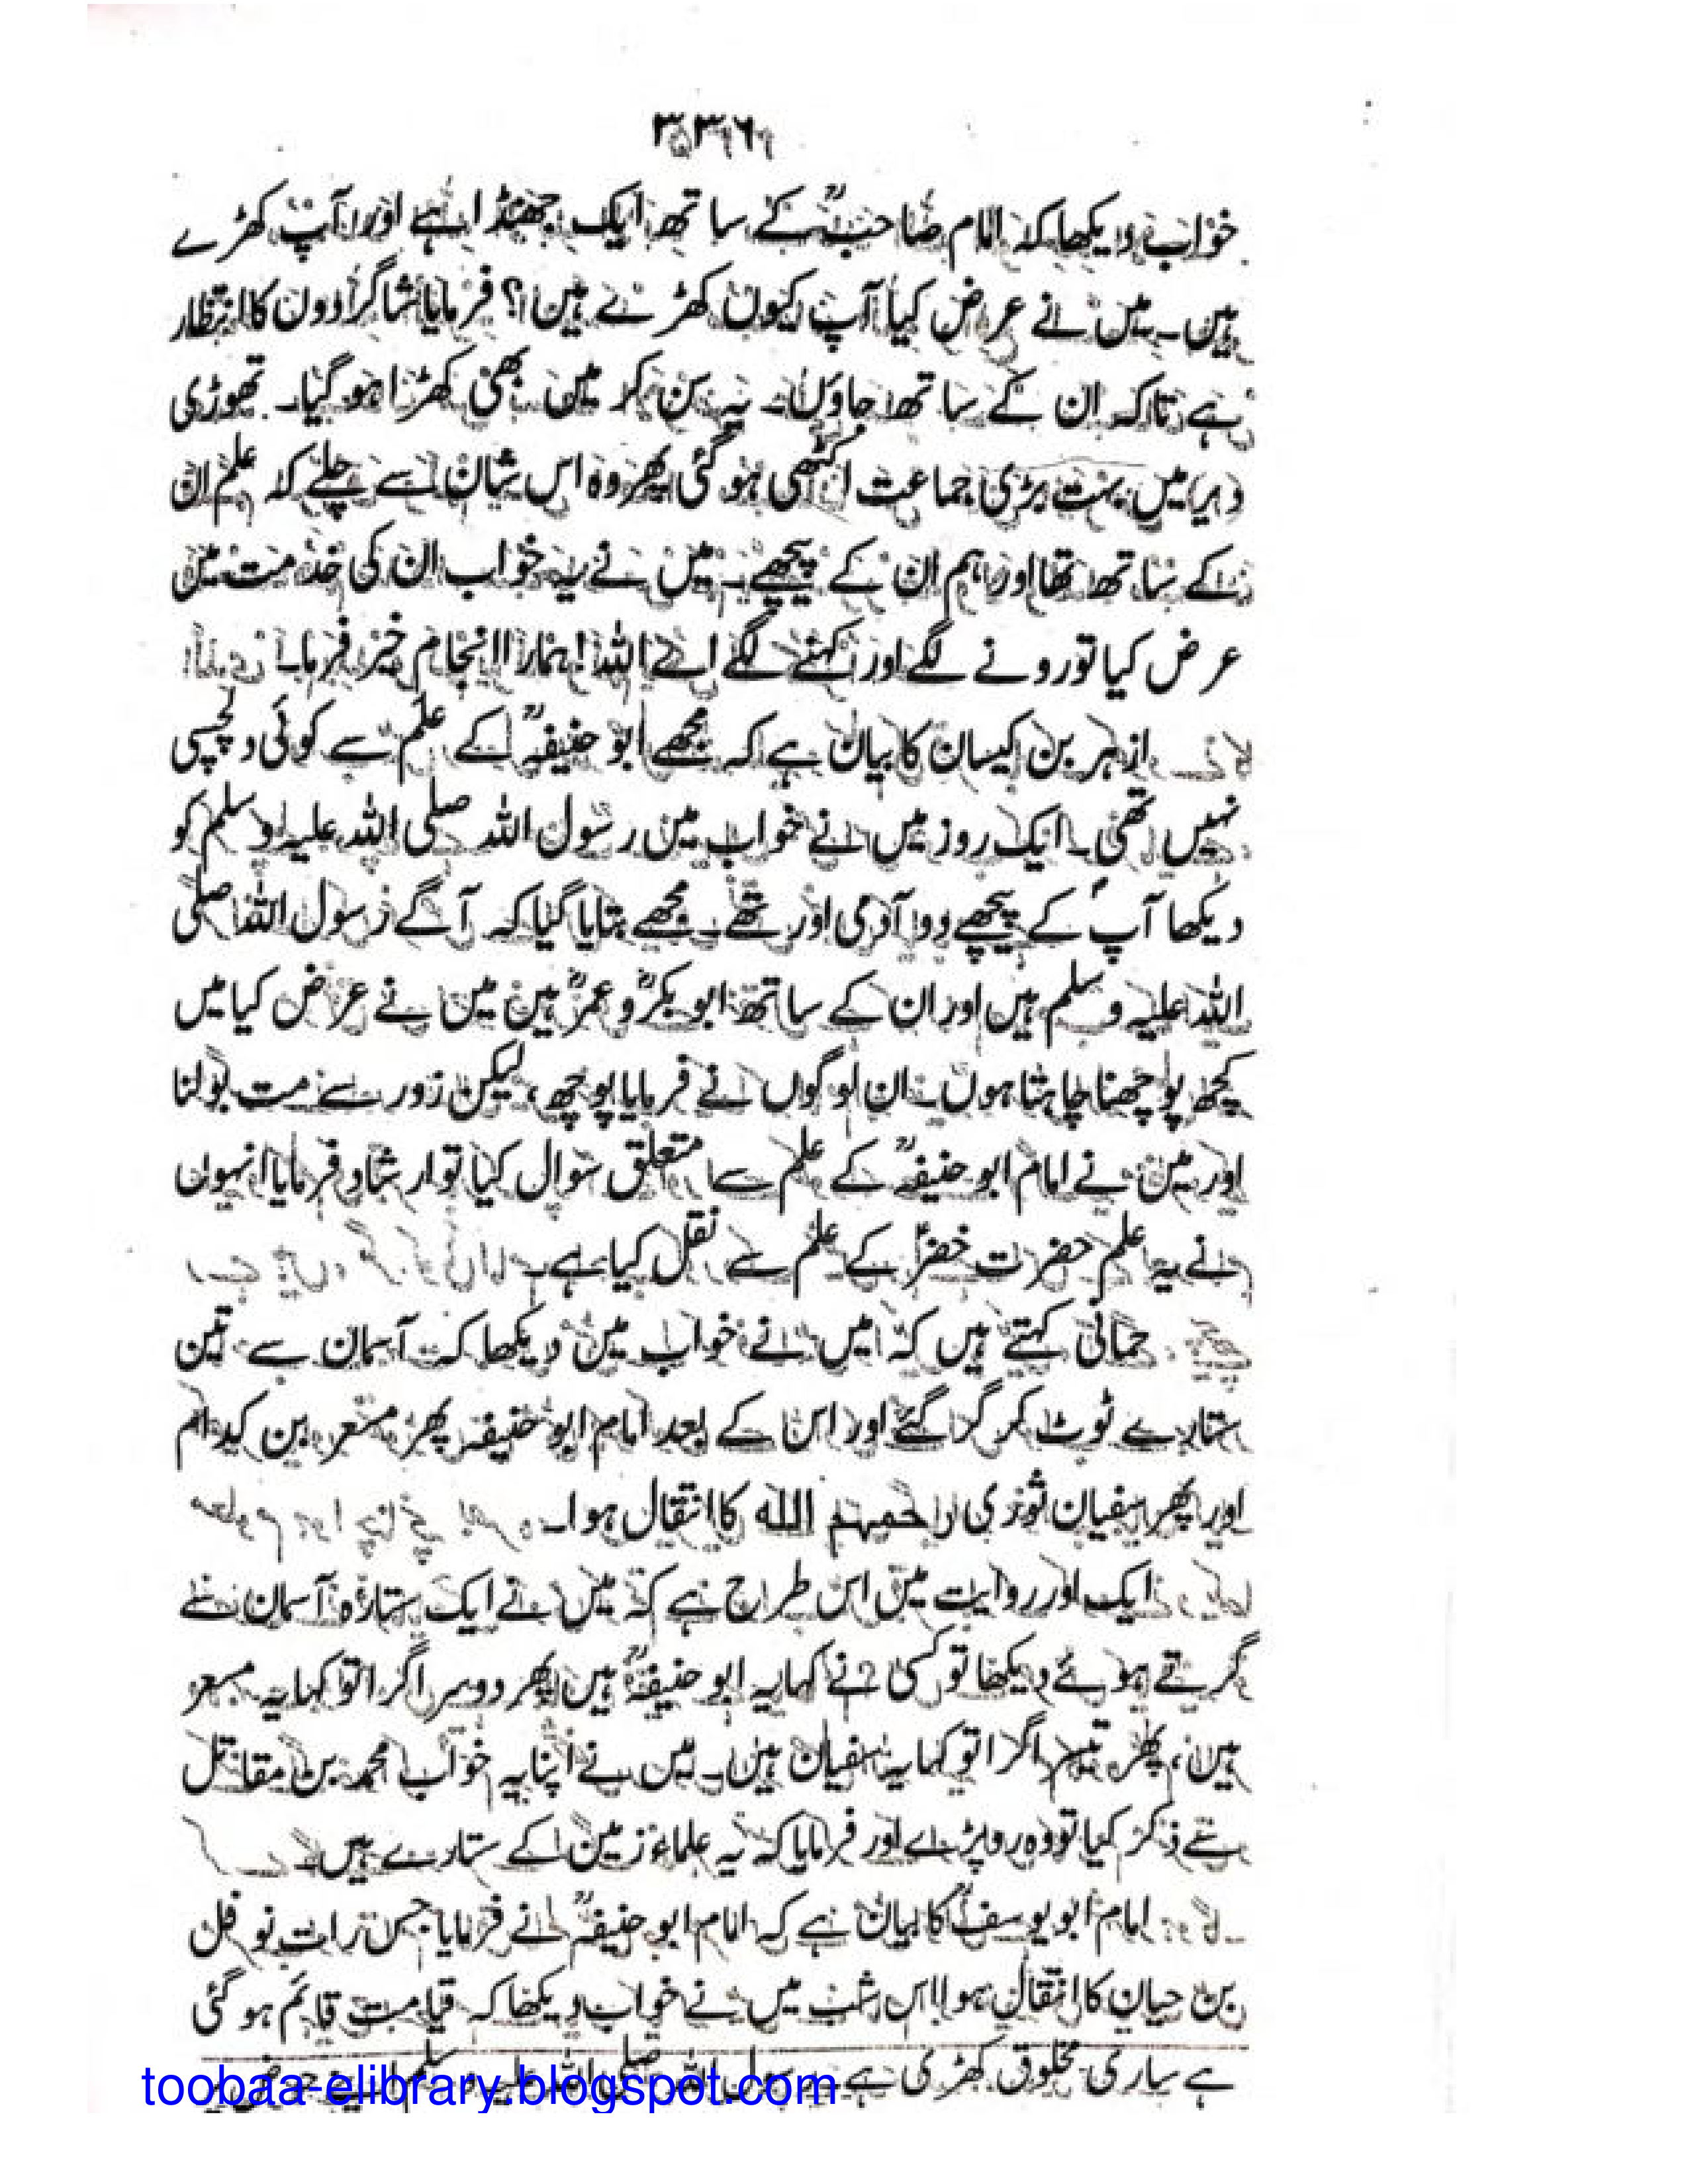 ۳۳۶
خواب دیکھا کہ امام صاحبؒ کے ساتھ ایک جھنڈا ہے اور آپ کھڑے
ہیں۔ میں نے عرض کیا آپ کیوں کھڑے ہیں؟ فرمایا شاگردوں کا انتظار
ہے تاکہ ان کے ساتھ جاؤں۔ یہ سن کر میں بھی کھڑا ہو گیا۔ تھوڑی
دیر میں بہت بڑی جماعت اکٹھی ہو گئی پھر وہ اس شان سے چلے کہ علم ان
کے ساتھ تھا اور ہم ان کے پیچھے۔ میں نے یہ خواب ان کی خدمت میں
عرض کیا تو رونے لگے اور کہنے لگے اے اللہ! ہمارا انجام خیر فرما۔
ازہر بن کیسان کا بیان ہے کہ مجھے ابو حنیفہؒ کے علم سے کوئی دلچسپی
نہیں تھی۔ ایک روز میں نے خواب میں رسول اللہ صلی اللہ علیہ وسلم کو
دیکھا آپؐ کے پیچھے دو آدمی اور تھے۔ مجھے بتایا گیا کہ آگے رسول اللہ صلی
اللہ علیہ وسلم ہیں اور ان کے ساتھ ابو بکرؓ و عمرؓ ہیں میں نے عرض کیا میں
کچھ پوچھنا چاہتا ہوں۔ ان لوگوں نے فرمایا پوچھ، لیکن زور سے مت بولنا
اور میں نے امام ابو حنیفہؒ کے علم سے متعلق سوال کیا تو ارشاد فرمایا انہوں
نے یہ علم حضرت خضرؑ کے علم سے نقل کیا ہے۔
حمانی کہتے ہیں کہ میں نے خواب میں دیکھا کہ آسمان سے تین
ستارے ٹوٹ کر گر گئے اور اس کے بعد امام ابو حنیفہ پھر مسعر بن کدام
اور پھر سفیان ثوری رحمہم اللہ کا انتقال ہوا۔
ایک اور روایت میں اس طرح ہے کہ میں نے ایک ستارہ آسمان سے
گرتے ہوئے دیکھا تو کسی نے کہا یہ ابو حنیفہؒ ہیں پھر دوسرا گرا تو کہا یہ مسعر
ہیں، پھر تیسرا گرا تو کہا یہ سفیان ہیں۔ میں نے اپنا یہ خواب محمد بن مقاتل
سے ذکر کیا تو وہ رو پڑے اور فرمایا کہ یہ علماء زمین کے ستارے ہیں۔
امام ابو یوسفؒ کا بیان ہے کہ امام ابو حنیفہؒ نے فرمایا جس رات نوفل
بن حیان کا انتقال ہوا اس شب میں نے خواب دیکھا کہ قیامت قائم ہو گئی
ہے ساری مخلوق کھڑی ہے رسول اللہ صلی اللہ علیہ وسلم
toobaa-elibrary.blogspot.com